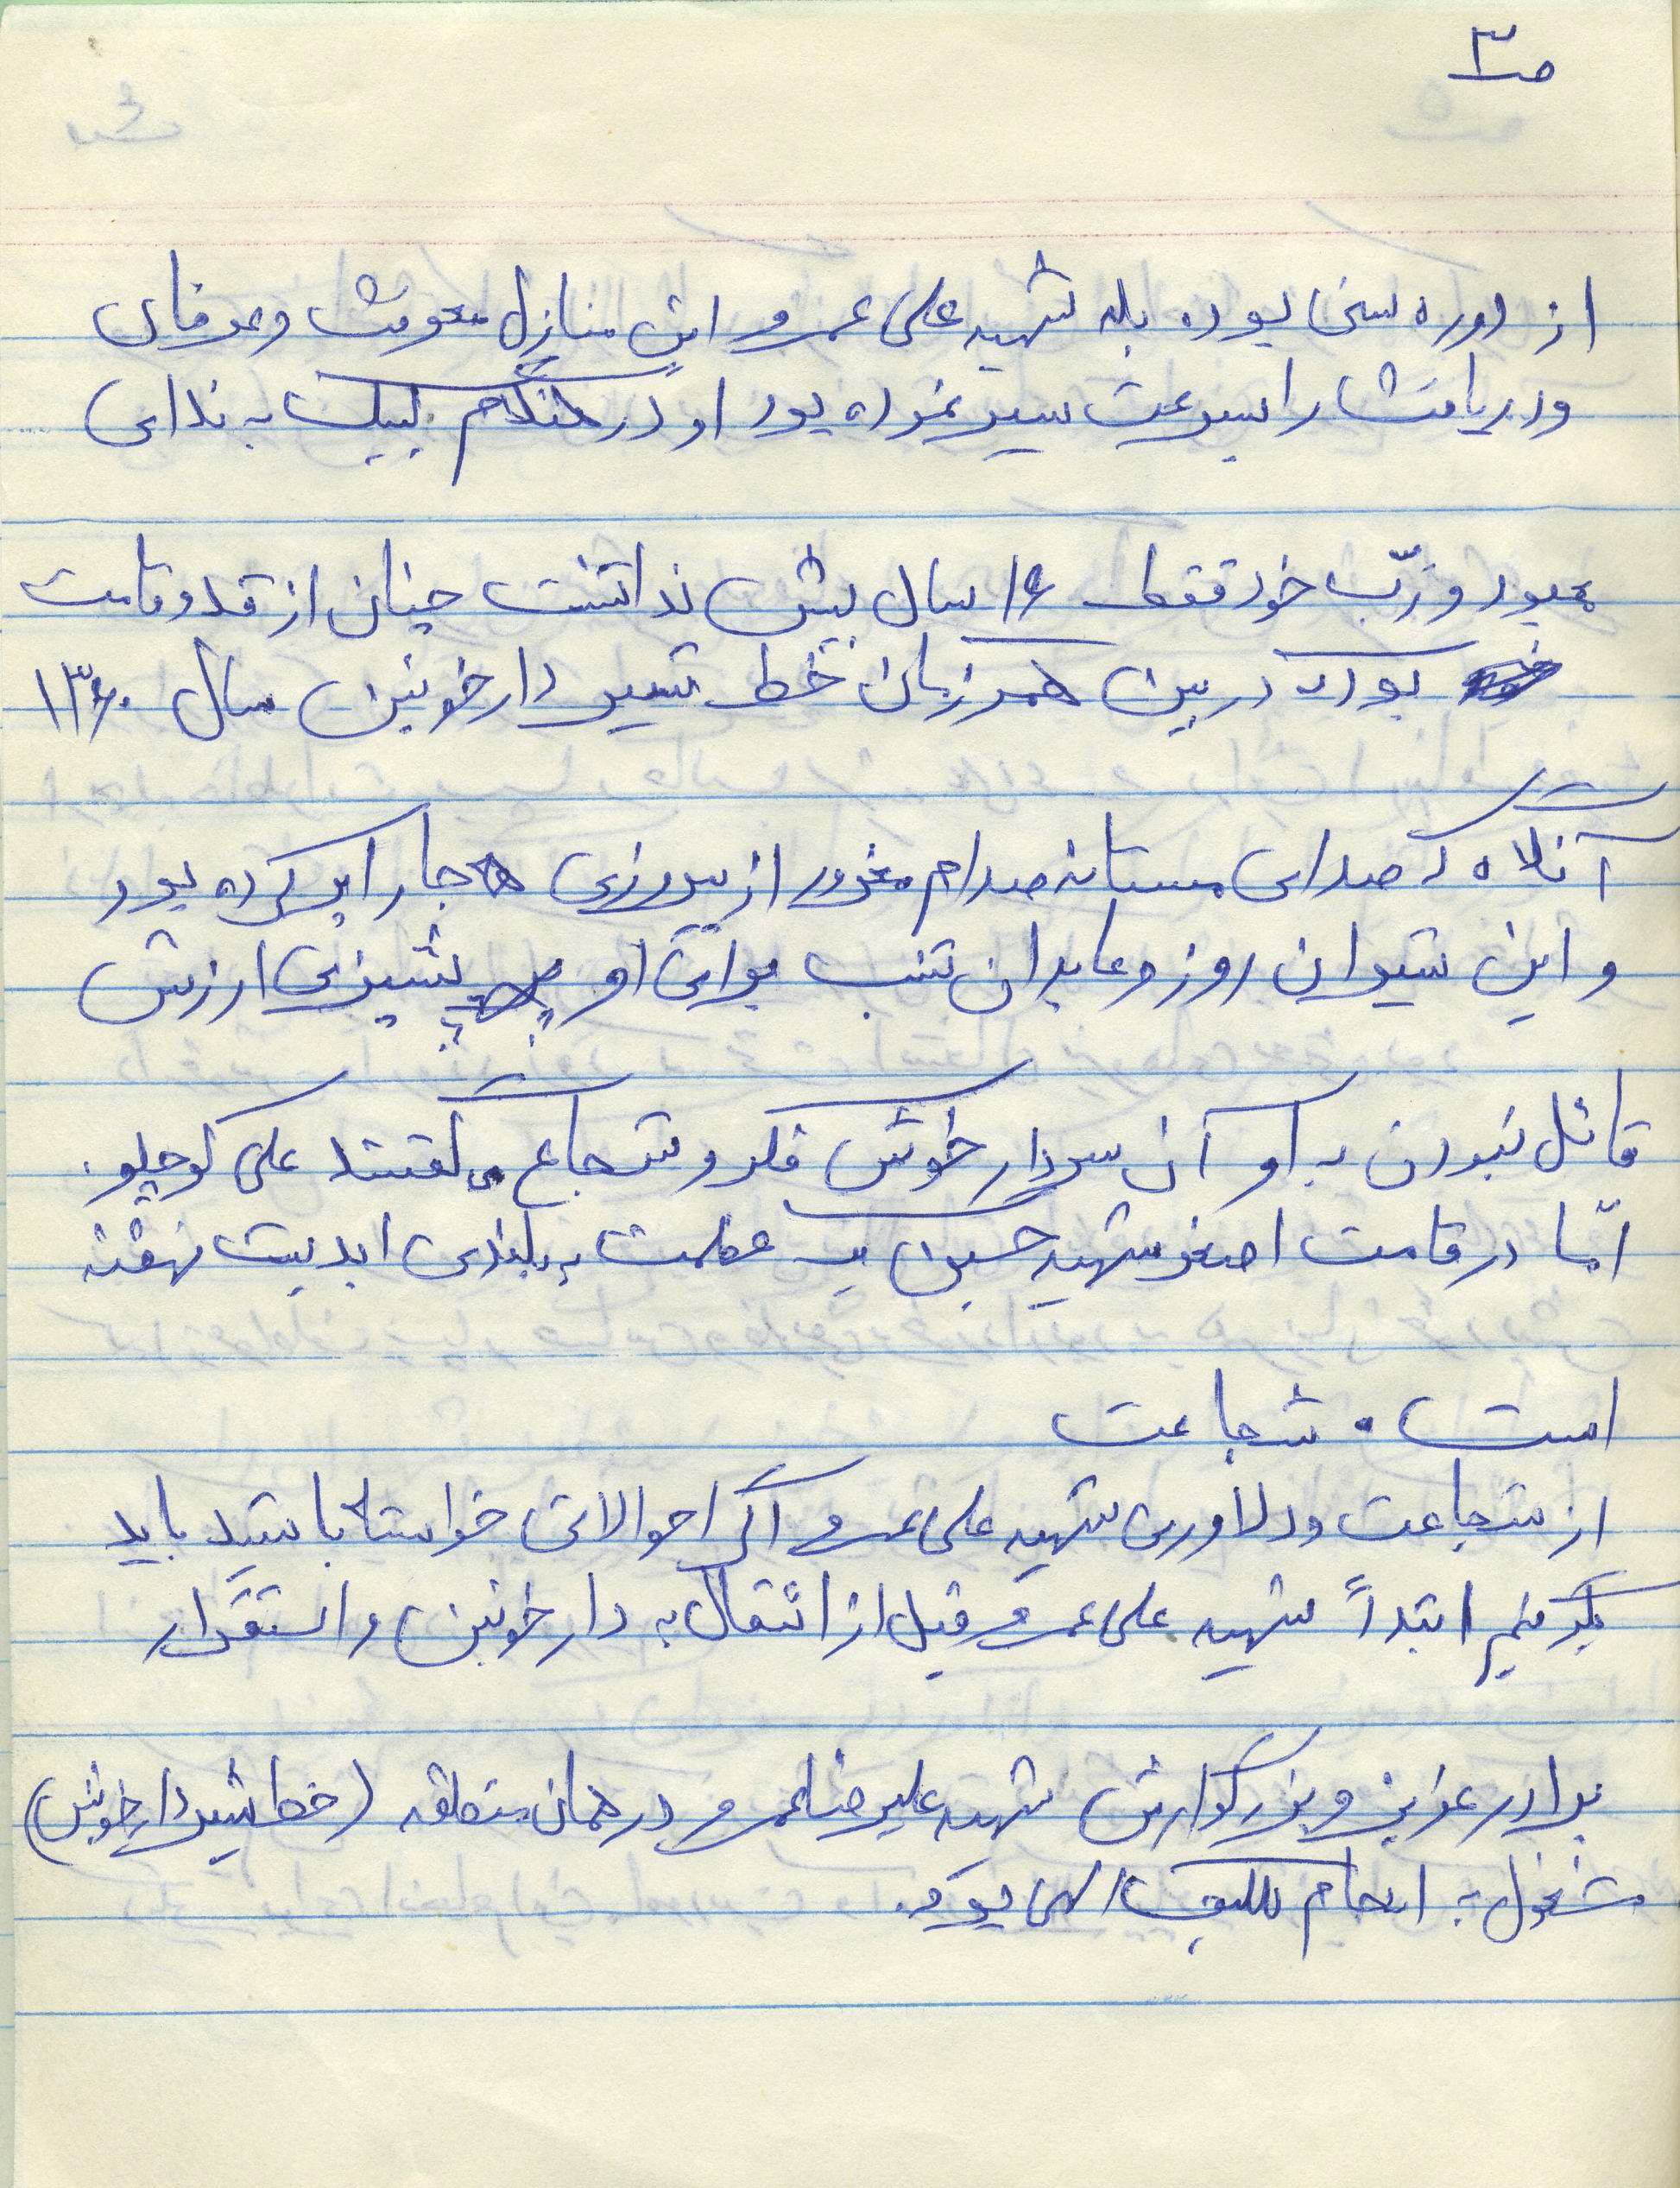 ص۳
از دوره سنی بوده بله شهید علی عمرو این منازل معرفت و عرفان
و دریافت را بسرعت سیر نموده بود او در هنگام لبیک به ندای
معبود و ربّ خود فقط ۱۶ سال بیش نداشت چنان از قد و قامت
بود که در بین همرزمان خط شیر دارخوئین سال ۱۳۶۰
آنگاه که صدای مستانه صدام مغرور از پیروزی همه جا را پر کرده بود
و این شیران روز و عابدان شب برای او پشیزی ارزش
قائل نبودن به او آن سردار خوش فکر و شجاع می گفتند علی کوچلو.
امّا در قامت اصغر شهید حسین یک عظمت به بلندی ابدیت نهفته
است. شجاعت
از شجاعت و دلاوری شهید علی عمرو اگر احوالاتی خواسته باشید باید
بگویم ابتداً شهید علی عمرو قبل از انتقال به دارخوئین و استقرار
برادر عزیز و بزرگوارش شهید علیرضا عمرو در همان منطقه (خط شیر دارخوئین)
مشغول به انجام تکلیف الهی بود.